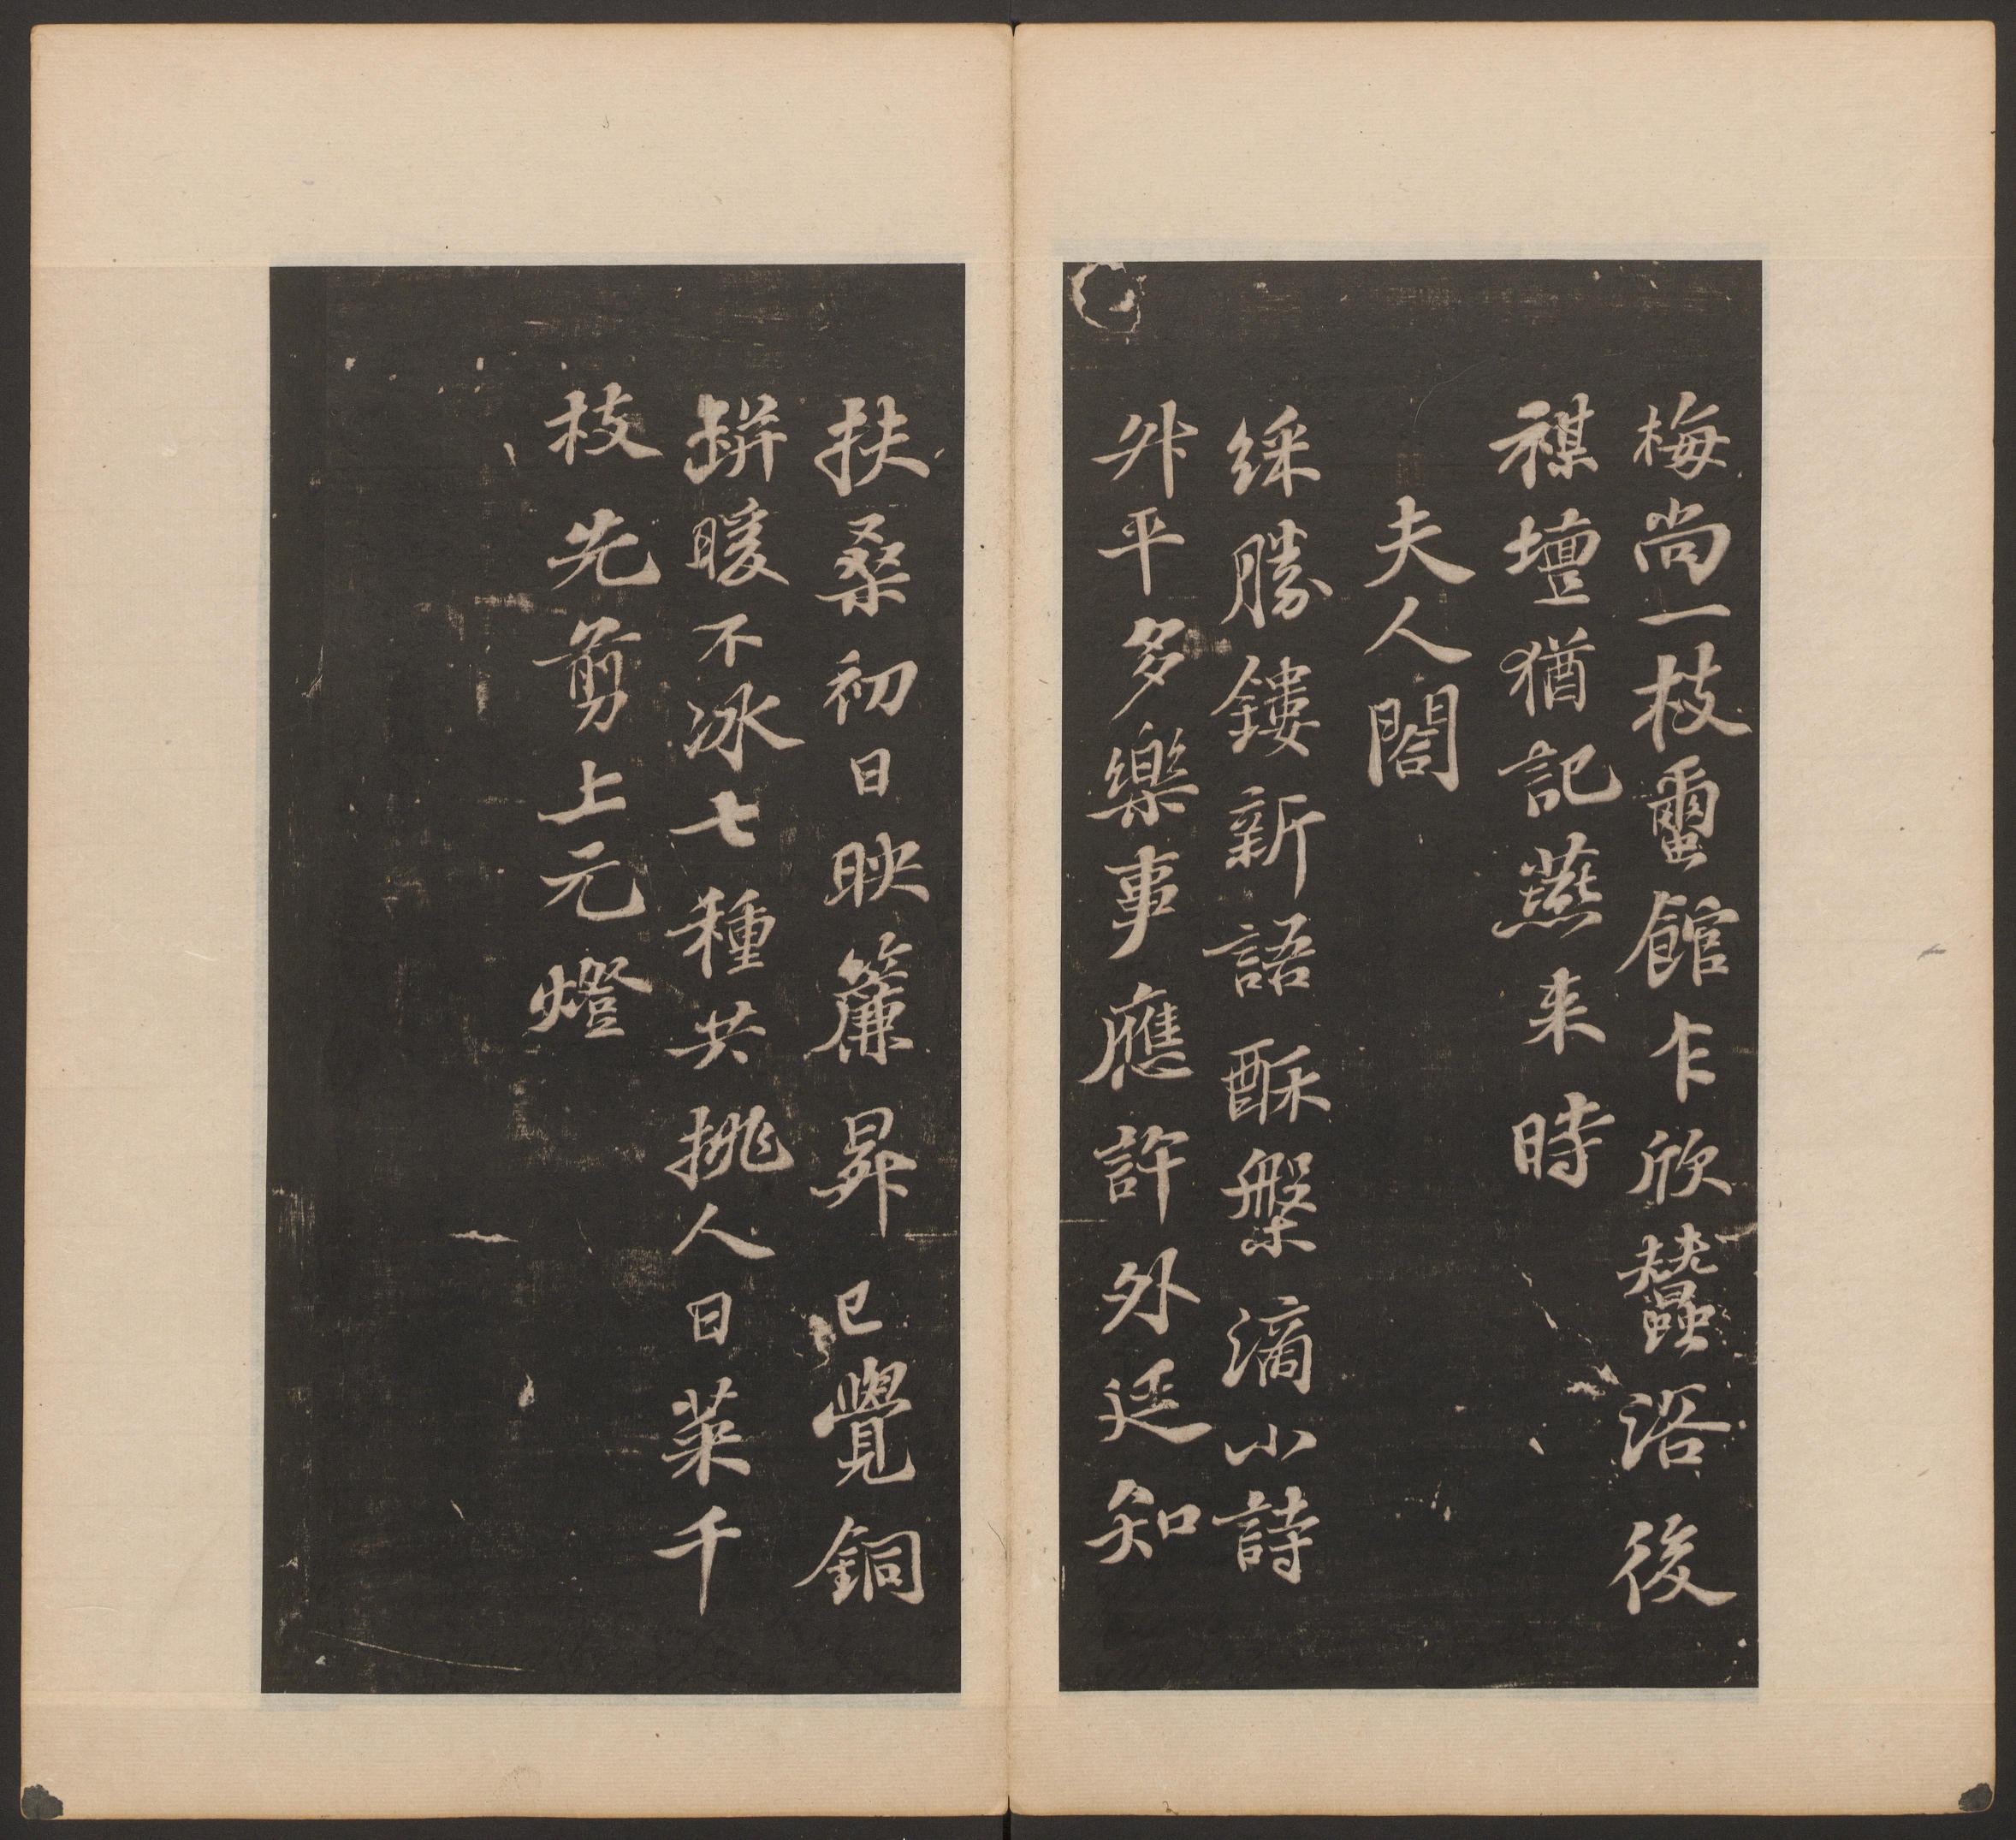 梅尚一枝蠒館乍欣蠶浴後
禖壇猶記燕来時
夫人閤
綵勝鏤新語酥槃滴小詩
升平多樂事應許外廷知
扶桑初日映簾昇已覺銅
缾暖不冰七種共挑人日菜千
枝先剪上元燈